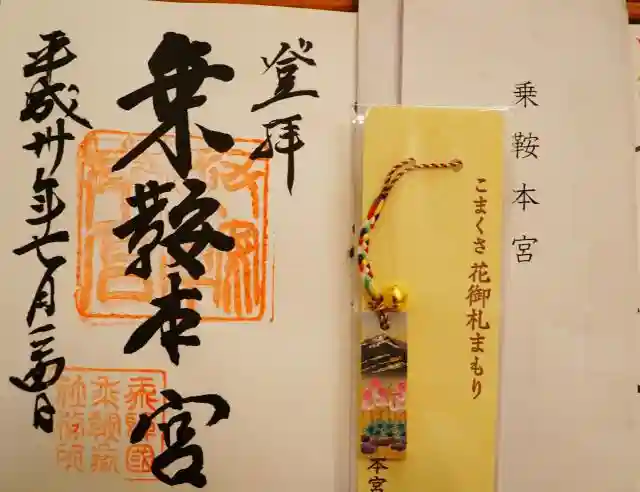 登拝
乗鞍本宮
平成卅年七月二四日
こまくさ 花御札まもり
本宮
乗鞍本宮